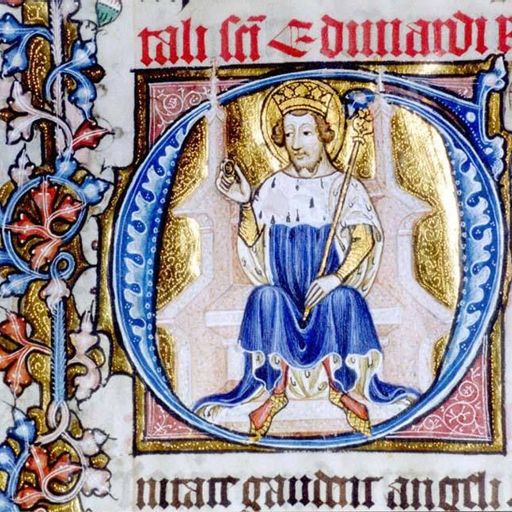 tali sc̄i Edwardi
nitate gaudent angeli